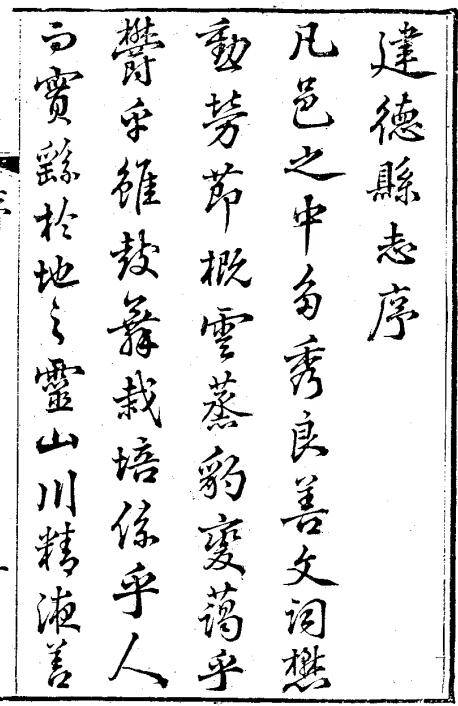 建德縣志序
凡邑之中多秀良善文詞懋
勳勞節概雲蒸豹變藹乎
鬱乎雖鼓舞栽培係乎人
而實繇於地之靈山川精液善